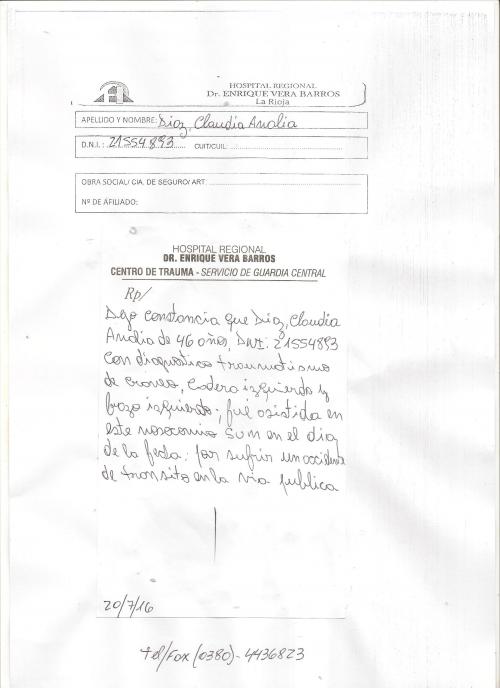 HOSPITAL REGIONAL
Dr. ENRIQUE VERA BARROS
La Rioja
APELLIDO Y NOMBRE: Diaz, Claudia Analia
D.N.I.: 21554893 CUIT/CUIL:
OBRA SOCIAL/ CIA. DE SEGURO/ ART:
Nº DE AFILIADO:
HOSPITAL REGIONAL
DR. ENRIQUE VERA BARROS
CENTRO DE TRAUMA - SERVICIO DE GUARDIA CENTRAL
Rp/
Dejo constancia que Diaz, Claudia
Analia de 46 años, DNI: 21554893
con diagnostico traumatismo
de craneo, cadera izquierda y
brazo izquierdo; fue asistida en
este nosocomio en el dia
de la fecha. por sufrir un accidente
de transito en la via publica
20/7/16
tel/Fax (0380)-4436823